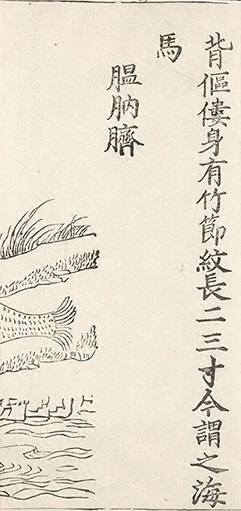 背傴僂身有竹節紋長二三寸今謂之海
馬
膃肭臍